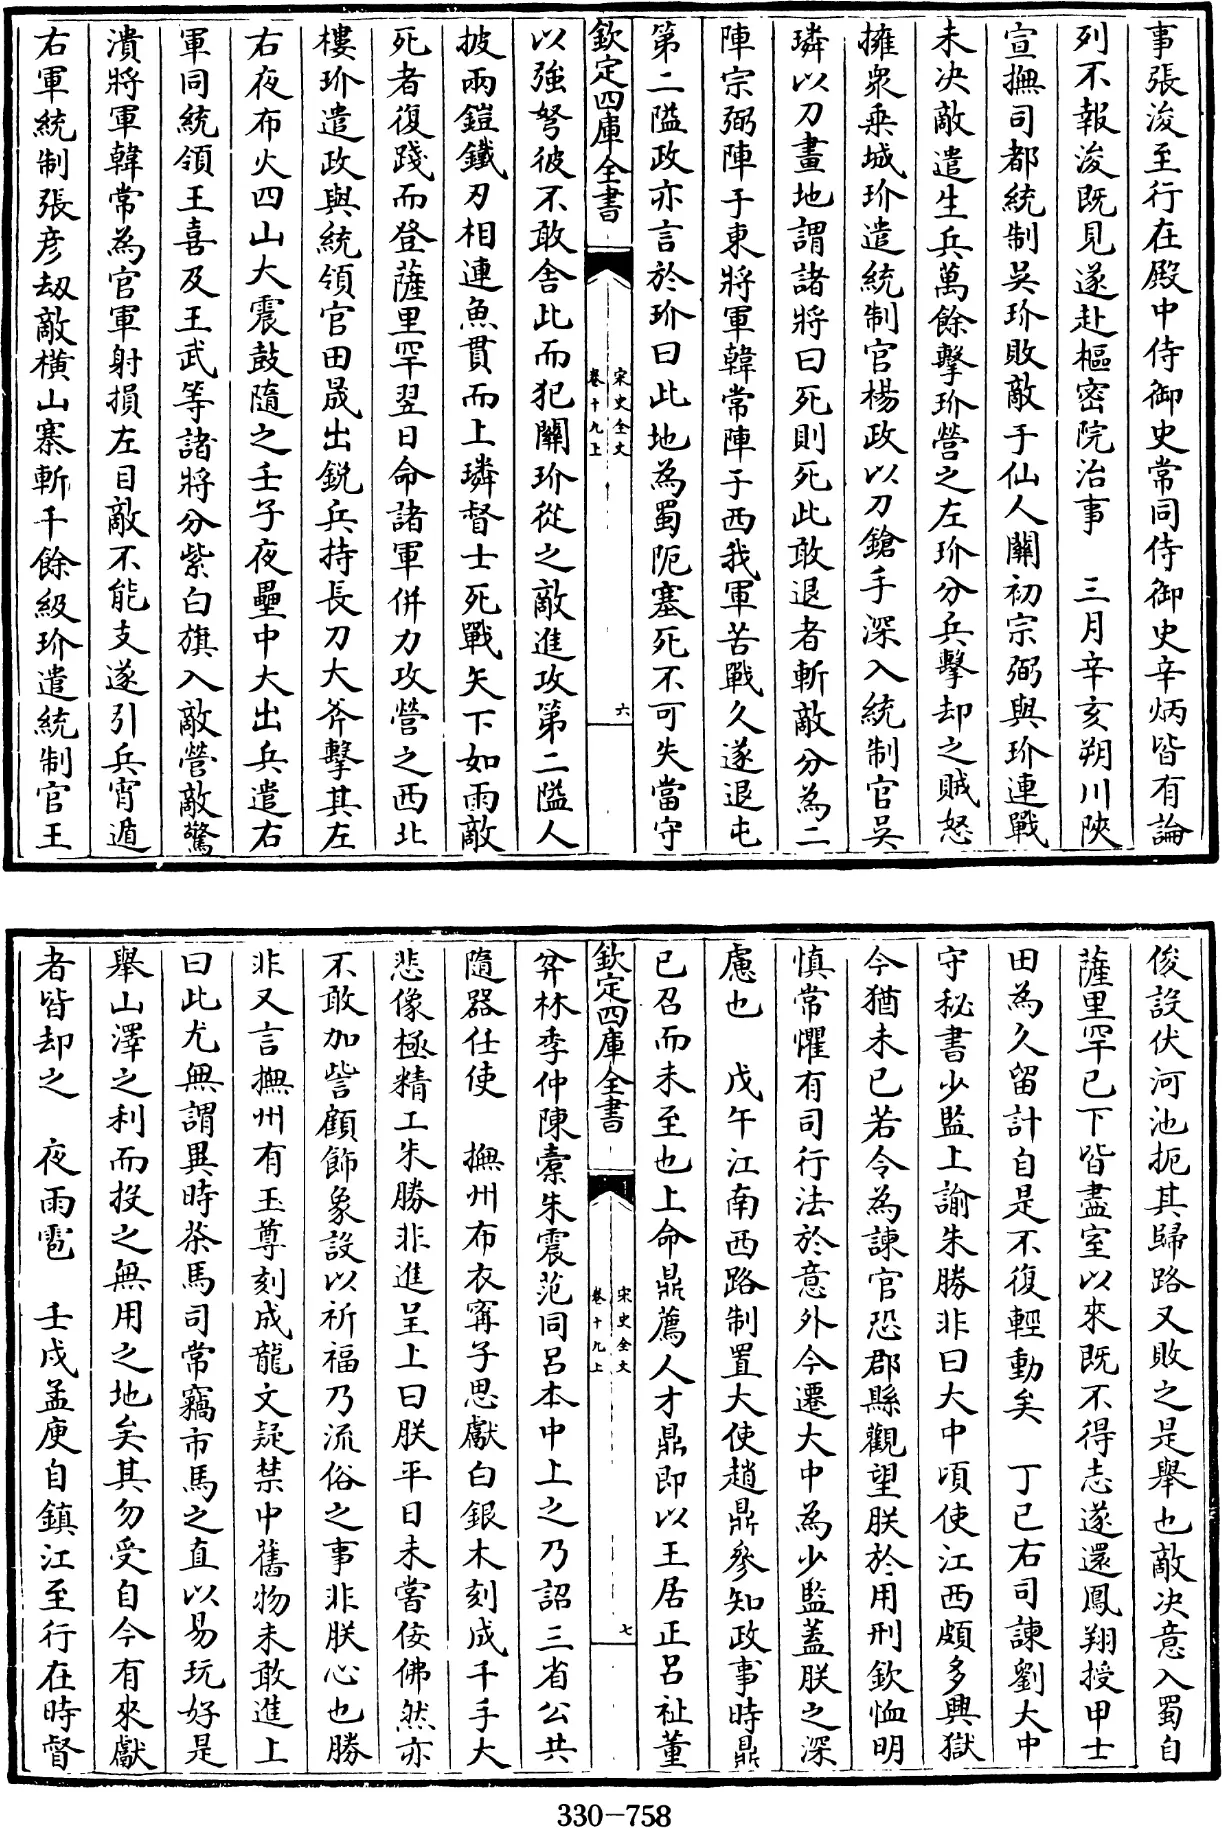 事張浚至行在殿中侍御史常同侍御史辛炳皆有論
列不報浚既見遂赴樞密院治事　三月辛亥朔川陜
宣撫司都統制吳玠敗敵于仙人關初宗弼與玠連戰
未決敵遣生兵萬餘擊玠營之左玠分兵擊却之賊怒
擁衆乗城玠遣統制官楊政以刀鎗手深入統制官吳
璘以刀畫地謂諸將曰死則死此敢退者斬敵分為二
陣宗弼陣于東將軍韓常陣于西我軍苦戰久遂退屯
第二隘政亦言於玠曰此地為蜀阨塞死不可失當守
欽定四庫全書
宋史全文
卷十九上
六
以強弩彼不敢舍此而犯關玠從之敵進攻第二隘人
披兩鎧鐵刃相連魚貫而上璘督士死戰矢下如雨敵
死者復踐而登薩里罕翌日命諸軍併力攻營之西北
樓玠遣政與統領官田晟出鋭兵持長刀大斧擊其左
右夜布火四山大震鼓隨之壬子夜壘中大出兵遣右
軍同統領王喜及王武等諸將分紫白旗入敵營敵驚
潰將軍韓常為官軍射損左目敵不能支遂引兵宵遁
右軍統制張彥刼敵横山寨斬千餘級玠遣統制官王
俊設伏河池扼其歸路又敗之是舉也敵决意入蜀自
薩里罕已下皆盡室以來既不得志遂還鳳翔授甲士
田為久留計自是不復輕動矣　丁巳右司諫劉大中
守秘書少監上諭朱勝非曰大中頃使江西頗多興獄
今猶未已若令為諫官恐郡縣觀望朕於用刑欽恤明
慎常懼有司行法於意外今遷大中為少監蓋朕之深
慮也　戊午江南西路制置大使趙鼎參知政事時鼎
已召而未至也上命鼎薦人才鼎即以王居正呂祉董
欽定四庫全書
宋史全文
卷十九上
七
弅林季仲陳橐朱震范同呂本中上之乃詔三省公共
隨器任使　撫州布衣寗子思獻白銀木刻成千手大
悲像極精工朱勝非進呈上曰朕平日未嘗佞佛然亦
不敢加訾顧飾象設以祈福乃流俗之事非朕心也勝
非又言撫州有玉尊刻成龍文疑禁中舊物未敢進上
曰此尤無謂異時茶馬司常竊市馬之直以易玩好是
舉山澤之利而投之無用之地矣其勿受自今有來獻
者皆却之　夜雨雹　壬戌孟庾自鎮江至行在時督
330-758